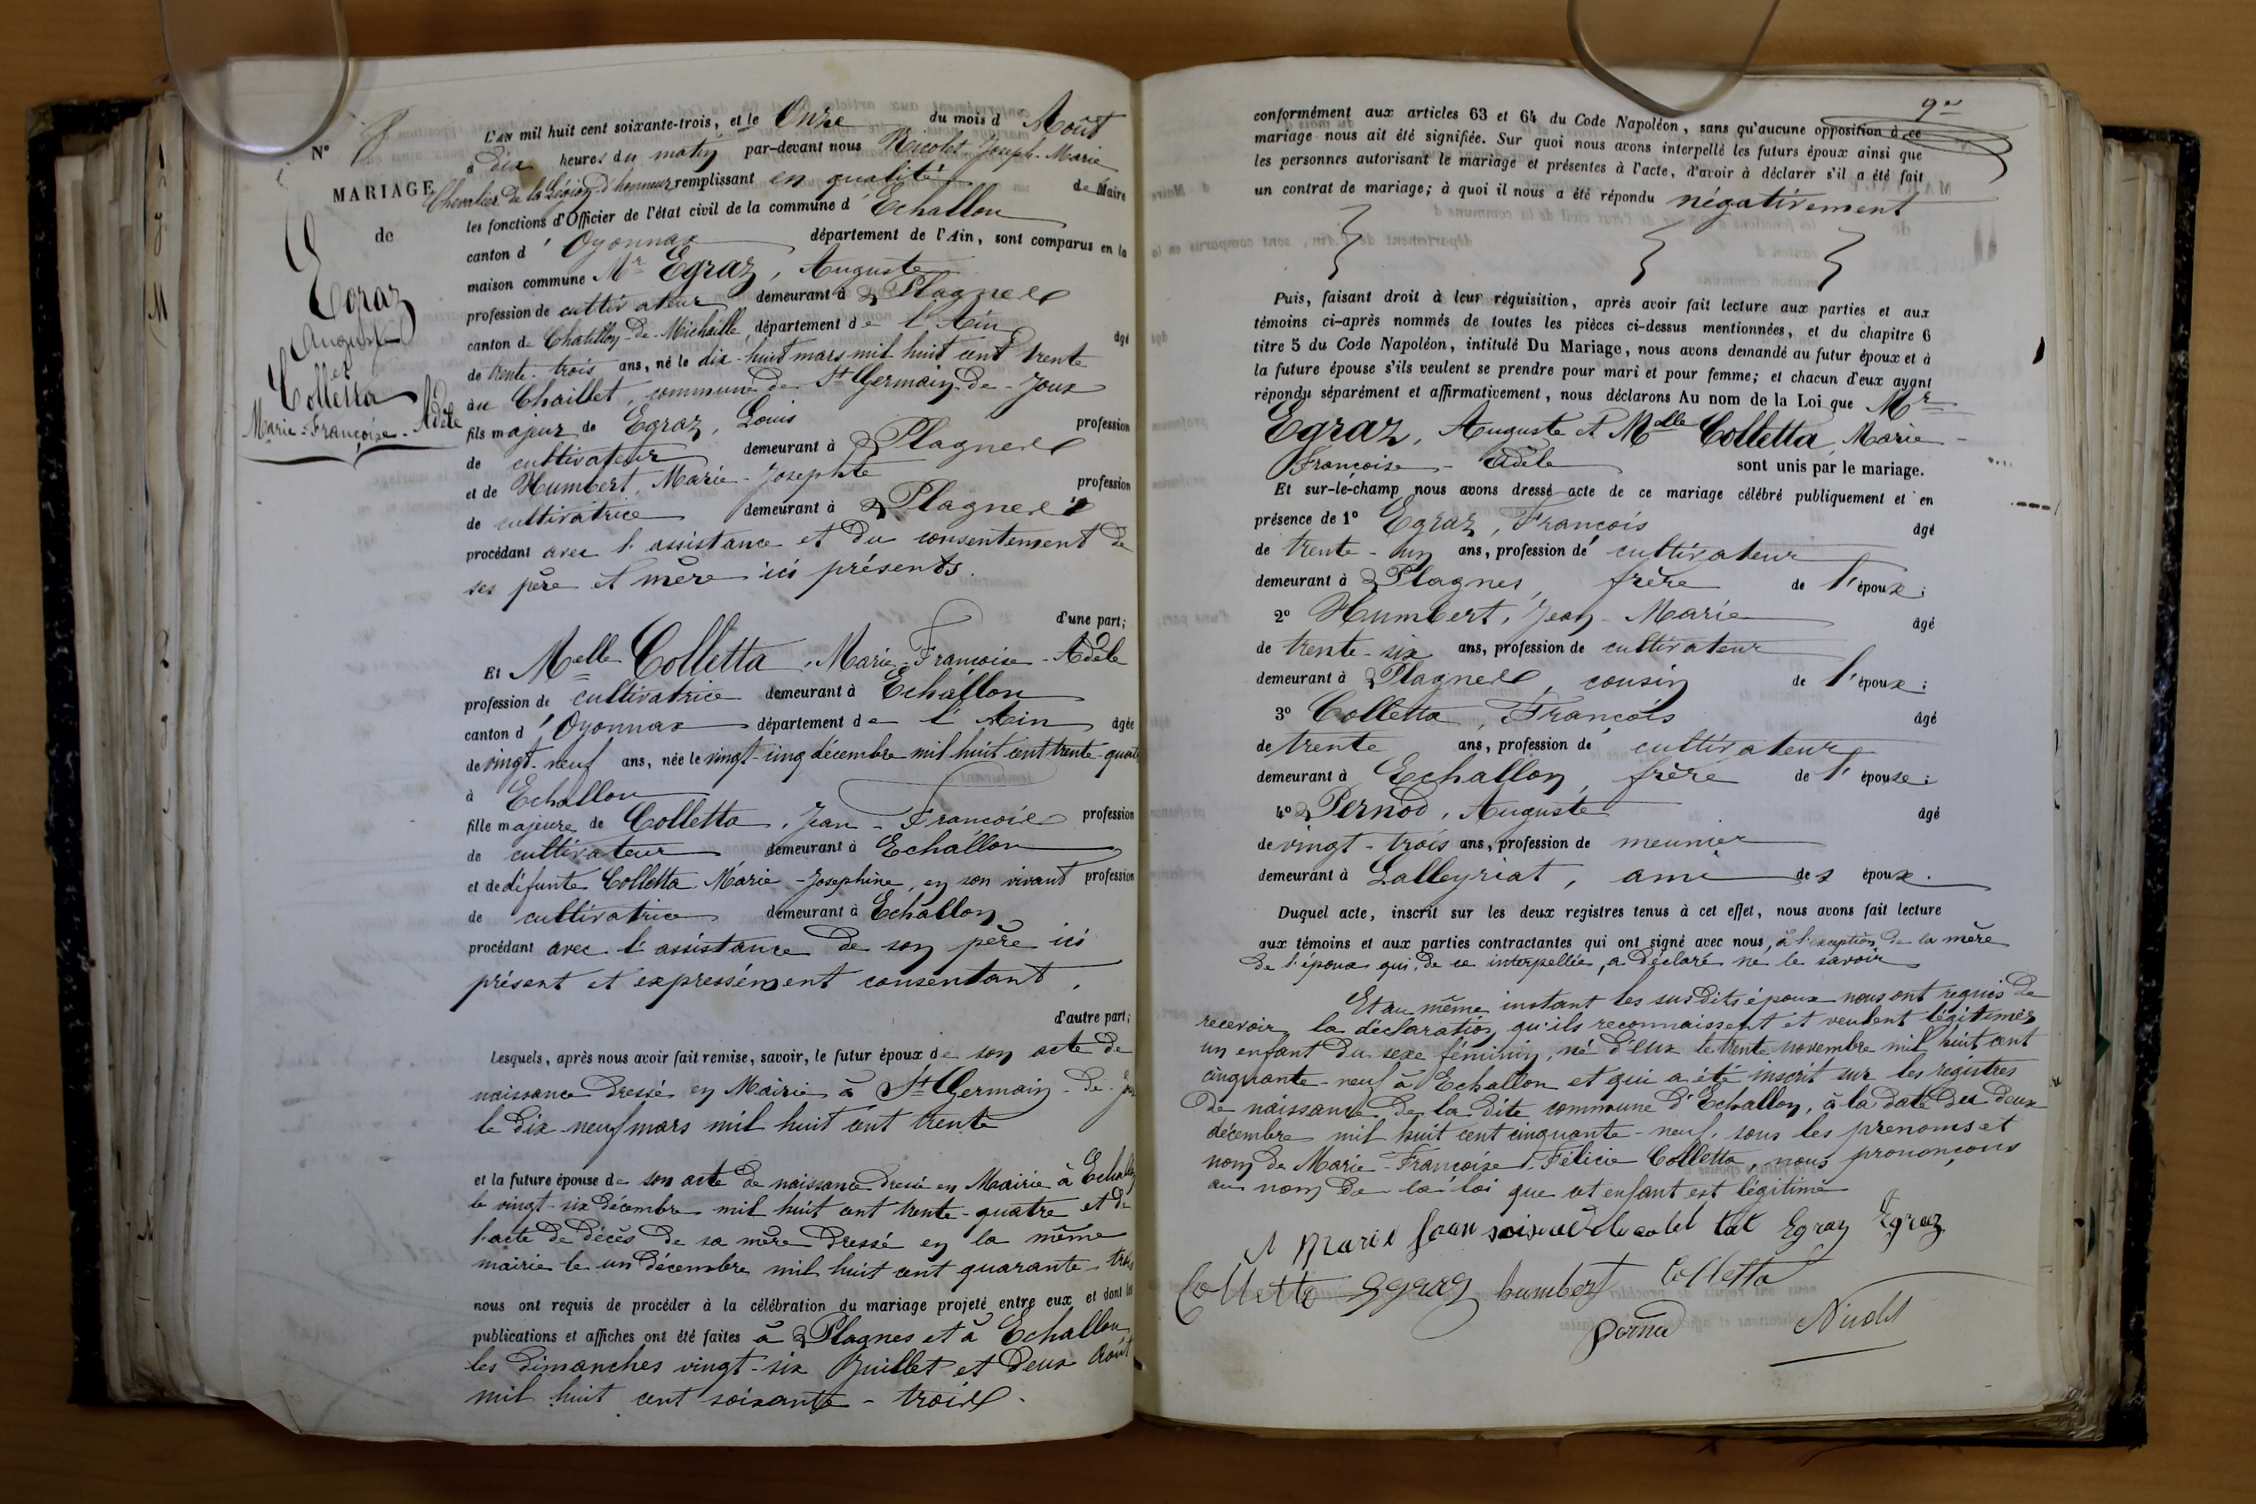 N° 8
MARIAGE
de
Egraz
Auguste
et
Colletta
Marie-Françoise-Adèle
L'AN mil huit cent soixante-trois, et le Onze du mois d Août
à dix heures du matin par-devant nous Nicolet Joseph-Marie
Chevalier de la Légion d'honneur remplissant en qualité de Maire
les fonctions d'Officier de l'état civil de la commune d'Echallon
canton d'Oyonnax département de l'Ain, sont comparus en la
maison commune Mr Egraz, Auguste
profession de cultivateur demeurant à Plagnes
canton de Chatillon-de-Michaille département de l'Ain âgé
de trente-trois ans, né le dix-huit mars mil huit cent trente
au Chaillet, commune de St Germain-de-Joux
fils majeur de Egraz, Louis profession
de cultivateur demeurant à Plagnes
et de Humbert, Marie-Josephte profession
de cultivatrice demeurant à Plagnes
procédant avec l'assistance et du consentement de
ses père et mère ici présents.
d'une part;
Et Melle Colletta, Marie-Françoise-Adèle
profession de cultivatrice demeurant à Echallon
canton d'Oyonnax département de l'Ain âgée
de vingt-neuf ans, née le vingt-cinq décembre mil huit cent trente-quatre
à Echallon
fille majeure de Colletta, Jean-François profession
de cultivateur demeurant à Echallon
et de défunte Colletta Marie-Josephine, en son vivant profession
de cultivatrice demeurant à Echallon
procédant avec l'assistance de son père ici
présent et expressément consentant,
d'autre part;
Lesquels, après nous avoir fait remise, savoir, le futur époux de son acte de
naissance dressé en Mairie à St Germain-de-Joux
le dix-neuf mars mil huit cent trente
et la future épouse de son acte de naissance dressé en Mairie à Echallon
le vingt-six décembre mil huit cent trente-quatre et de
l'acte de décès de sa mère dressé en la même
mairie le un décembre mil huit cent quarante-trois
nous ont requis de procéder à la célébration du mariage projeté entre eux et dont les
publications et affiches ont été faites à Plagnes et à Echallon
les dimanches vingt-six Juillet et deux Août
mil huit cent soixante-trois.
conformément aux articles 63 et 64 du Code Napoléon, sans qu'aucune opposition à ce
mariage nous ait été signifiée. Sur quoi nous avons interpellé les futurs époux ainsi que
les personnes autorisant le mariage et présentes à l'acte, d'avoir à déclarer s'il a été fait
un contrat de mariage; à quoi il nous a été répondu négativement
Puis, faisant droit à leur réquisition, après avoir fait lecture aux parties et aux
témoins ci-après nommés de toutes les pièces ci-dessus mentionnées, et du chapitre 6
titre 5 du Code Napoléon, intitulé Du Mariage, nous avons demandé au futur époux et à
la future épouse s'ils veulent se prendre pour mari et pour femme; et chacun d'eux ayant
répondu séparément et affirmativement, nous déclarons Au nom de la Loi que Mr
Egraz, Auguste et Melle Colletta, Marie-
Françoise-Adèle sont unis par le mariage.
Et sur-le-champ nous avons dressé acte de ce mariage célébré publiquement et en
présence de 1° Egraz, François âgé
de trente-un ans, profession de cultivateur
demeurant à Plagnes, frère de l'époux;
2° Humbert, Jean-Marie âgé
de trente-six ans, profession de cultivateur
demeurant à Plagnes, cousin de l'époux;
3° Colletta, François âgé
de trente ans, profession de cultivateur
demeurant à Echallon, frère de l'épouse;
4° Pernod, Auguste âgé
de vingt-trois ans, profession de meunier
demeurant à Lalleyriat, ami des époux.
Duquel acte, inscrit sur les deux registres tenus à cet effet, nous avons fait lecture
aux témoins et aux parties contractantes qui ont signé avec nous, à l'exception de la mère
de l'époux qui, de ce interpellée, a déclaré ne le savoir
Et au même instant les susdits époux nous ont requis de
recevoir la déclaration qu'ils reconnaissent et veulent légitimer
un enfant du sexe féminin, né d'eux le trente novembre mil huit cent
cinquante-neuf à Echallon et qui a été inscrit sur les registres
de naissance de la dite commune d'Echallon, à la date du deux
décembre mil huit cent cinquante-neuf, sous les prenoms et
nom de Marie-Françoise Félicie Colletta, nous prononçons
au nom de la loi que cet enfant est légitimé
Egraz Egraz
Colletta Egraz humbert Colletta